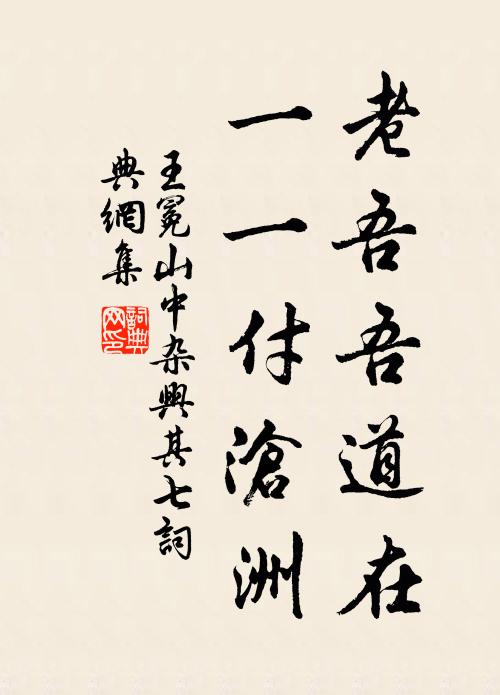 老吾吾道在
一一付滄洲
王冕山中杂興其七詞
典網集
詞典
网印